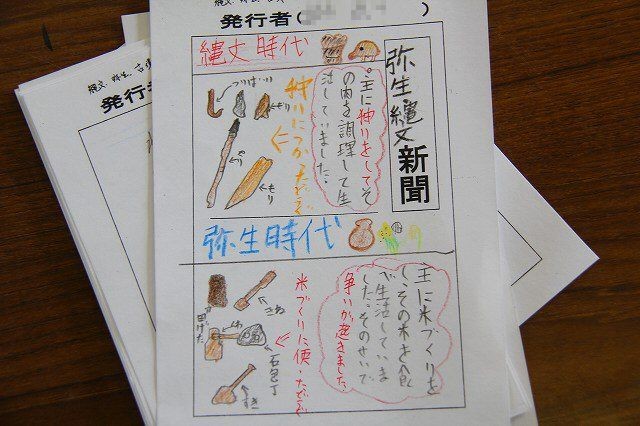 縄文、弥生、古
発行者(
)
縄文時代
弥生縄文新聞
・主に狩りをしてそ
の肉を調理して生
活していました。
狩りにつかったどうぐ
つりばり
もり
やり
もり
弥生時代
主に米づくりを
し、その米を食
べ生活していま
した。そのせいで
争いが起きました。
米づくりに使ったどうぐ
田げた
くわ
石包丁
すき
縄文、弥生、古
発行者